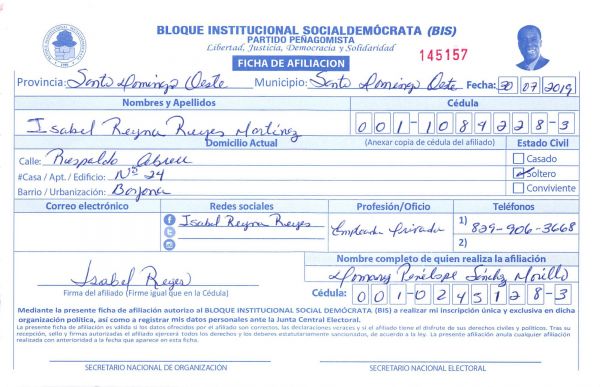 BLOQUE INSTITUCIONAL SOCIALDEMÓCRATA (BIS)
PARTIDO PEÑAGOMISTA
Libertad, Justicia, Democracia y Solidaridad
145157
FICHA DE AFILIACION
Provincia: Santo Domingo Oeste Municipio: Santo Domingo Oeste Fecha: 30 07 2019
Nombres y Apellidos Cédula
Isabel Reyna Reyes Martínez 001-1089228-3
Domicilio Actual (Anexar copia de cédula del afiliado) Estado Civil
Calle: Respaldo Abreu Casado
#Casa / Apt. / Edificio: Nº 24 Soltero
Barrio / Urbanización: Conviviente
Correo electrónico Redes sociales Profesión/Oficio Teléfonos
Isabel Reyna Reyes Empleada Privada 1) 829-906-3668
2)
Nombre completo de quien realiza la afiliación
Isabel Reyes Penélope Sánchez Morillo
Firma del afiliado (Firme igual que en la Cédula) Cédula: 001-0245128-3
Mediante la presente ficha de afiliación autorizo al BLOQUE INSTITUCIONAL SOCIAL DEMÓCRATA (BIS) a realizar mi inscripción única y exclusiva en dicha
organización política, así como a registrar mis datos personales ante la Junta Central Electoral.
La presente ficha de afiliación es válida si los datos ofrecidos por el afiliado son correctos, las declaraciones veraces y si el afiliado tiene el disfrute de sus derechos civiles y políticos. Tras su
recepción, sello y firmas autorizadas el afiliado ejercerá todos los derechos y los deberes estatutariamente sancionados, de acuerdo a la ley. La presente afiliación anula cualquier afiliación
realizada con anterioridad a la fecha que aparece en esta ficha.
SECRETARIO NACIONAL DE ORGANIZACIÓN SECRETARIO NACIONAL ELECTORAL